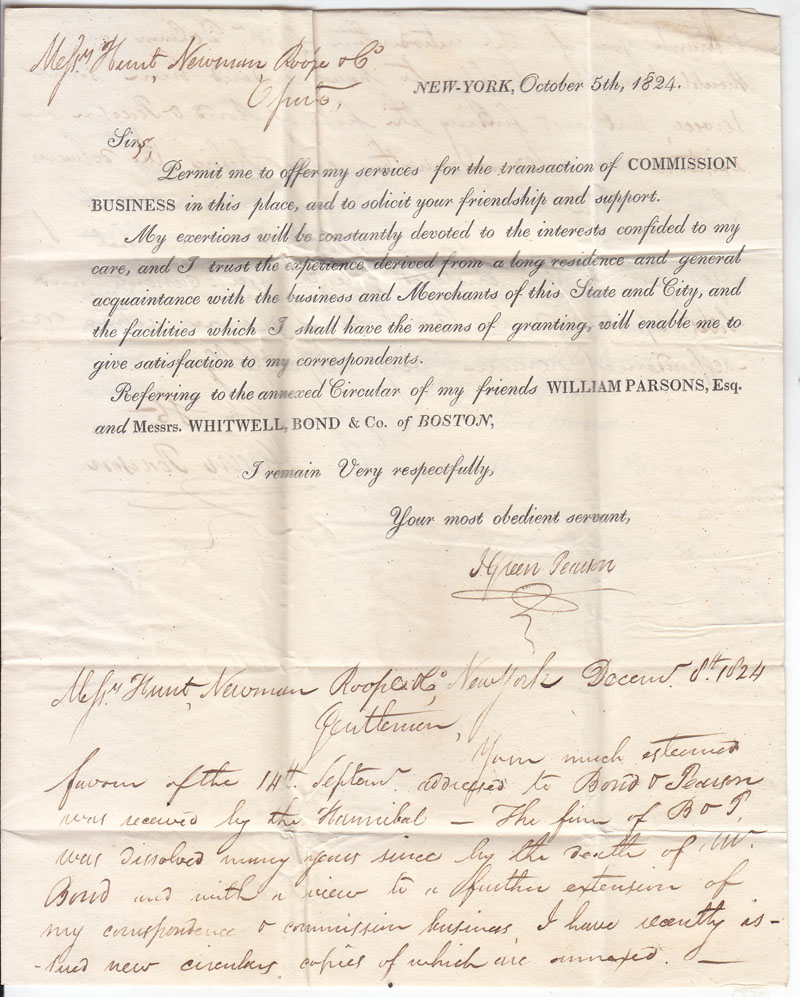 Messrs Hunt, Newman Roope & Co
Oporto,
NEW-YORK, October 5th, 1824.
Sirs,
Permit me to offer my services for the transaction of COMMISSION
BUSINESS in this place, and to solicit your friendship and support.
My exertions will be constantly devoted to the interests confided to my
care, and I trust the experience derived from a long residence and general
acquaintance with the business and Merchants of this State and City, and
the facilities which I shall have the means of granting, will enable me to
give satisfaction to my correspondents.
Referring to the annexed Circular of my friends WILLIAM PARSONS, Esq.
and Messrs. WHITWELL, BOND & Co. of BOSTON,
I remain Very respectfully,
Your most obedient servant,
J Green Pearson
Messrs Hunt, Newman Roope & Co, New York Decemr. 8th. 1824
Gentlemen,
Your much esteemed
favour of the 14th. Septemr. addressed to Bond & Pearson
was received by the Hannibal — The firm of B & P.
was dissolved many years since by the death of Mr.
Bond and with a view to a further extension of
my correspondence & commission business I have recently is-
-sued new circulars, copies of which are annexed. —